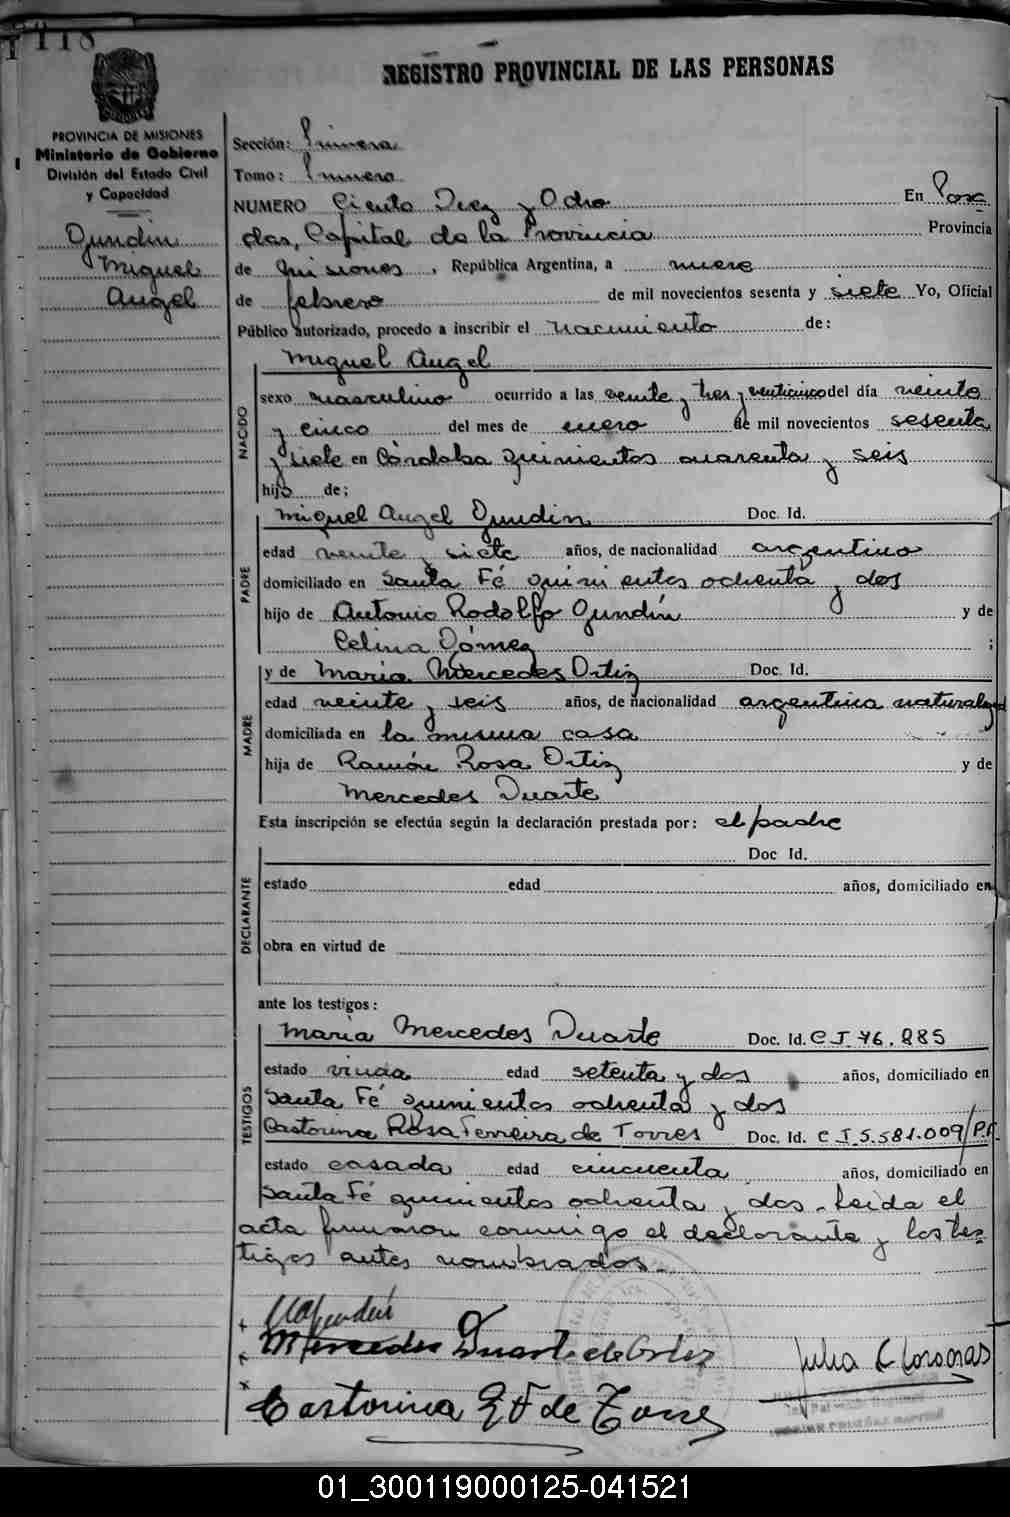 118
REGISTRO PROVINCIAL DE LAS PERSONAS
PROVINCIA DE MISIONES
Ministerio de Gobierno
División del Estado Civil
y Capacidad
Gundin
Miguel
Angel
Sección: Primera
Tomo: Primero
NUMERO Ciento Diez y Ocho En Posa
das, Capital de la Provincia Provincia
de Misiones, República Argentina, a nueve
de febrero de mil novecientos sesenta y siete Yo, Oficial
Público autorizado, procedo a inscribir el nacimiento de:
NACIDO
Miguel Angel
sexo masculino ocurrido a las veinte y tres y veinticinco del día veinte
y cinco del mes de enero de mil novecientos sesenta
y siete en Córdoba quinientos cuarenta y seis
hijo de:
PADRE
Miguel Angel Gundin Doc. Id.
edad veinte y siete años, de nacionalidad argentino
domiciliado en Santa Fé quinientos ochenta y dos
hijo de Antonio Rodolfo Gundín y de
Celina Gómez ;
MADRE
y de Maria Mercedes Ortiz Doc. Id.
edad veinte y seis años, de nacionalidad argentina
domiciliada en la misma casa
hija de Ramón Rosa Ortiz y de
Mercedes Duarte
Esta inscripción se efectúa según la declaración prestada por: el padre
DECLARANTE
Doc Id.
estado edad años, domiciliado en
obra en virtud de
ante los testigos:
TESTIGOS
Maria Mercedes Duarte Doc. Id. C I 76.885
estado viuda edad setenta y dos años, domiciliado en
Santa Fé quinientos ochenta y dos
Castorina Rosa Ferreira de Torres Doc. Id. C I 5.581.009/P.F.
estado casada edad cincuenta años, domiciliado en
Santa Fé quinientos ochenta y dos. Leida el
acta firmaron conmigo el declarante y los tes
tigos antes nombrados.
Mercedes Duarte de Ortiz
Castorina R F de Torres
Julia
01_300119000125-041521